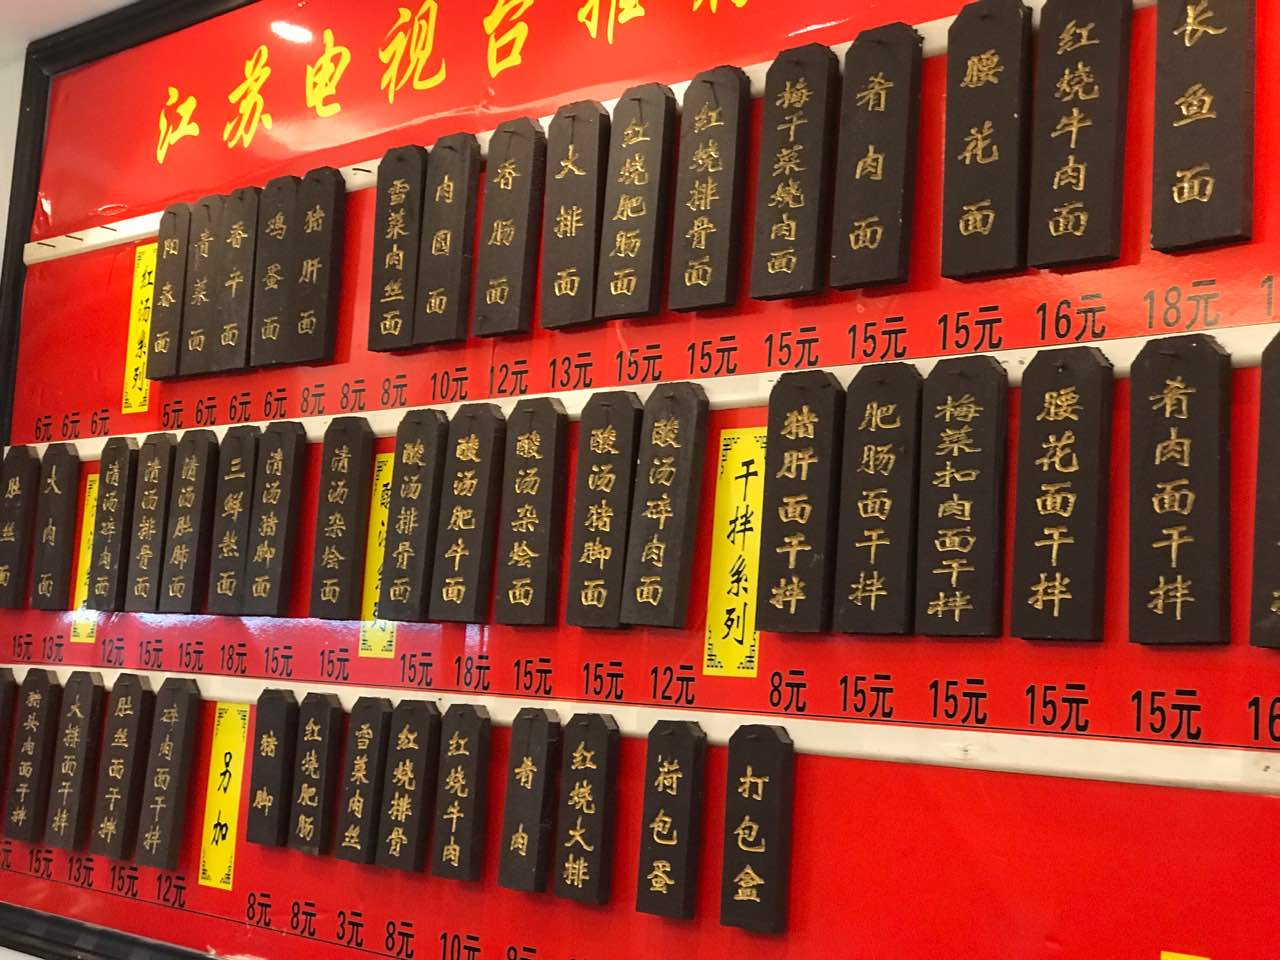 江苏电视台推
红汤系列
阳春面
青菜面
香干面
鸡蛋面
猪肝面
雪菜肉丝面
肉圆面
香肠面
大排面
红烧肥肠面
红烧排骨面
梅干菜烧肉面
肴肉面
腰花面
红烧牛肉面
长鱼面
6元 6元 6元 5元 6元 6元 6元 8元 8元 8元 10元 12元 13元 15元 15元 15元 15元 15元 16元 18元
肚丝面
大肉面
清汤碎肉面
清汤排骨面
清汤肚肺面
三鲜熬面
清汤猪脚面
清汤杂烩面
酸汤排骨面
酸汤肥牛面
酸汤杂烩面
酸汤猪脚面
酸汤碎肉面
干拌系列
猪肝面干拌
肥肠面干拌
梅菜扣肉面干拌
腰花面干拌
肴肉面干拌
15元 13元 12元 15元 15元 18元 15元 15元 15元 18元 15元 15元 12元 8元 15元 15元 15元 15元 16
猪头肉面干拌
大排面干拌
肚丝面干拌
碎肉面干拌
另加
猪脚
红烧肥肠
雪菜肉丝
红烧排骨
红烧牛肉
肴肉
红烧大排
荷包蛋
打包盒
元 15元 13元 15元 12元 8元 8元 3元 8元 10元